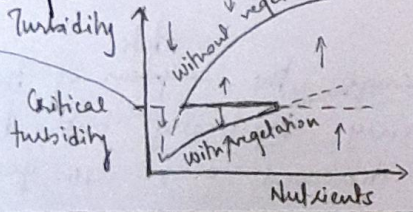 Turbidity
without vege
Critical
turbidity
with vegetation
Nutrients